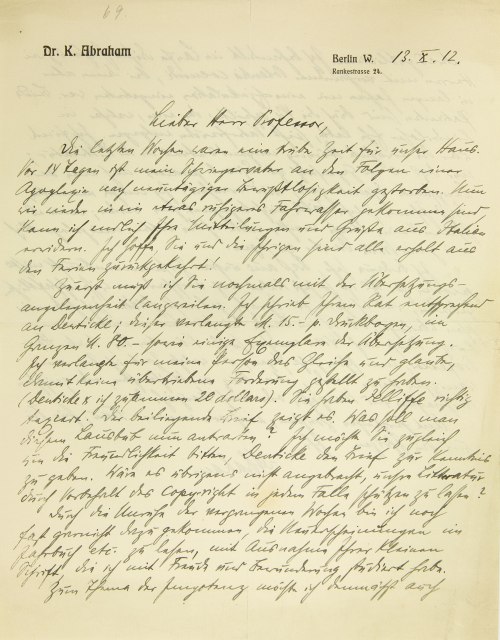 69
Dr. K. Abraham
Berlin W. 13. X. 12.
Rankestrasse 24.
Lieber Herr Professor,
Die letzten Wochen waren eine trübe Zeit für unser Haus.
Vor 14 Tagen ist mein Schwiegervater an den Folgen einer
Apoplexie nach neuntägiger Bewußtlosigkeit gestorben. Nun
wir wieder in ein etwas ruhigeres Fahrwasser gekommen sind,
kann ich endlich Ihre Mitteilungen und Grüße aus Italien
erwidern. Ich hoffe, Sie und die Ihrigen sind alle erholt aus
den Ferien zurückgekehrt!
Zuerst muß ich Sie nochmals mit der Übersetzungs-
angelegenheit langweilen. Ich schrieb Ihrem Rat entsprechend
an Deuticke; dieser verlangte M. 15.- p. Druckbogen, im
Ganzen M. 80.- sowie einige Exemplare der Übersetzung.
Ich verlangte für meine Person das Gleiche und glaubte,
damit keine übertriebene Forderung gestellt zu haben.
(Deuticke & ich zusammen 20 dollars). Sie haben Jelliffe richtig
taxiert. Der beiliegende Brief zeigt es. Was soll man
diesem antworten? Ich möchte Sie zugleich
um die Freundlichkeit bitten, Deuticke den Brief zur Kenntnis
zu geben. Wäre es übrigens nicht angebracht, unsre Literatur
durch Vorbehalt des Copyright in jedem Falle schützen zu lassen?
Durch die Unruhe der vergangenen Wochen bin ich noch
fast garnicht dazu gekommen, die Neuerscheinungen im
Jahrbuch etc. zu lesen, mit Ausnahme Ihrer kleinen
Schrift, die ich mit Freude und Bewunderung studiert habe.
Zum Thema der Impotenz möchte ich demnächst auch